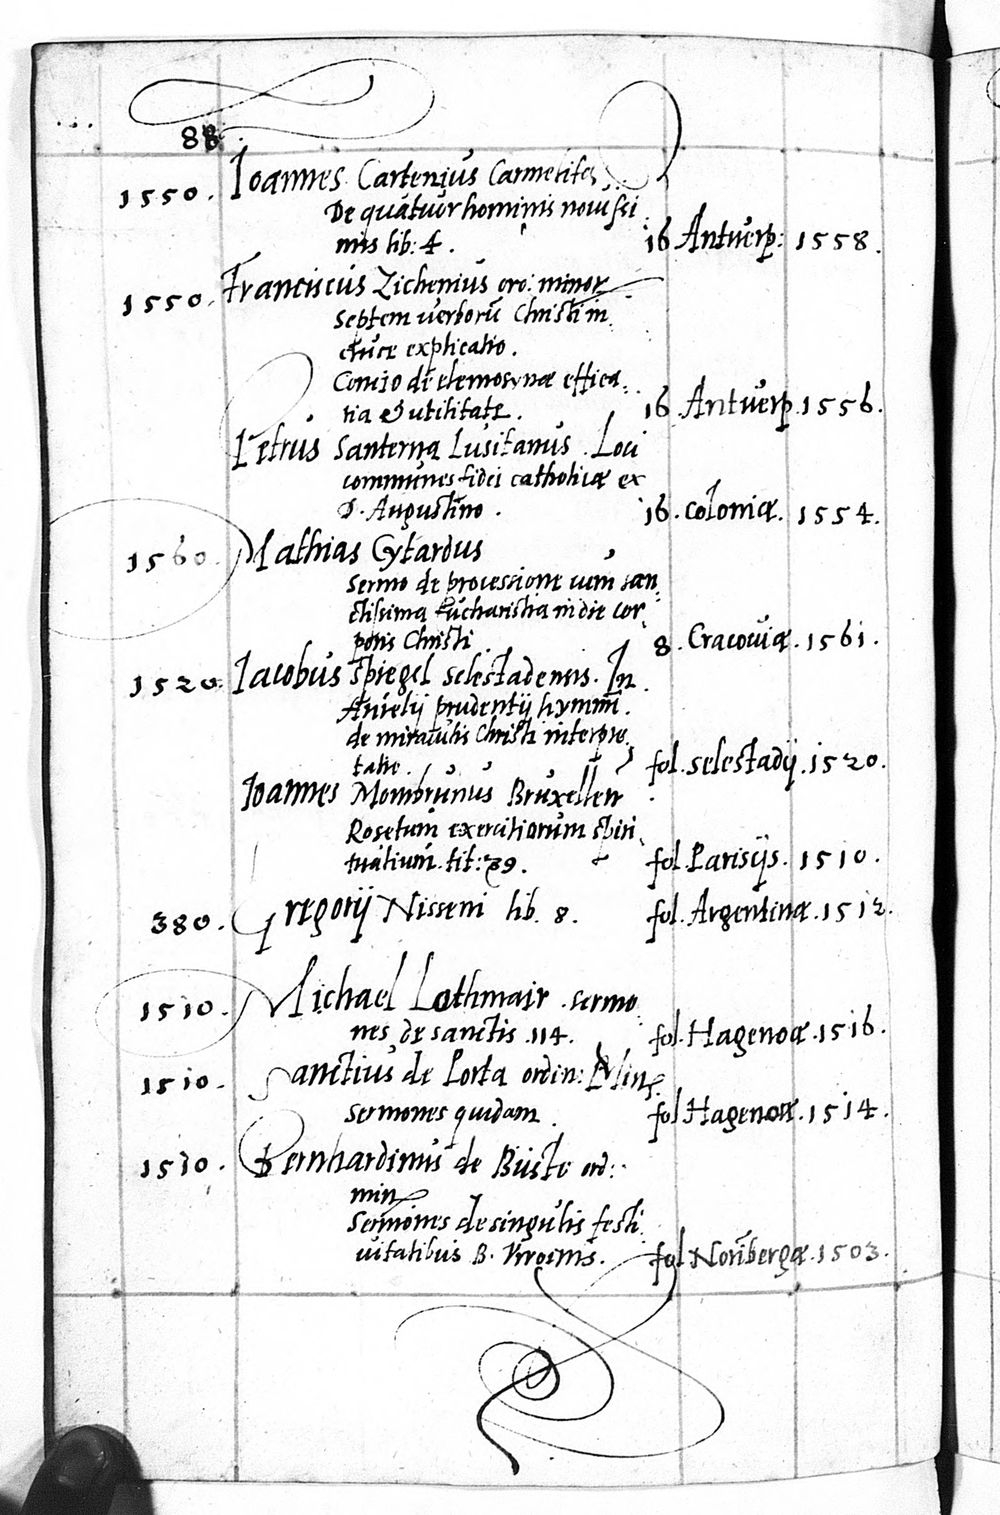 88
1550. Ioannes Cartenius Carmelites
De quatuor hominis nouissi
mis lib: 4. 16 Antuerp: 1558.
1550. Franciscus Zichenius ord: minor
septem uerborũ Christi in
cruce explicatio.
Concio de elemosynæ effica
tia & utilitate. 16 Antuerp. 1556.
Petrus Santerna Lusitanus. Loci
communes fidei catholicæ ex
D. Augustino. 16. Coloniæ. 1554.
1560. Mathias Cytardus
Sermo de processione cum san
ctissima Eucharistia in die cor
poris Christi 8. Cracouiæ. 1561.
1520. Iacobus Spiegel Selestadensis. In
Aurelij prudentij hymnũ.
de miraculis Christi interpre
tatio. fol. Selestadij. 1520.
Ioannes Momburnus Bruxellen
Rosetum exercitiorum spiri
tualium. tit: 39. fol. Parisijs. 1510.
380. Gregorij Nisseni lib. 8. fol. Argentinæ. 1512.
1510. Michael Lothmair. sermo
nes de sanctis. 114. fol. Hagenoæ. 1516.
1510. Sanctius de Porta ordin: Min
Sermones quidam. fol Hagenoæ. 1514.
1510. Bernhardinus de Busto ord:
min
Sermones de singulis festi
uitatibus B. Virginis. fol Noribergæ. 1503.